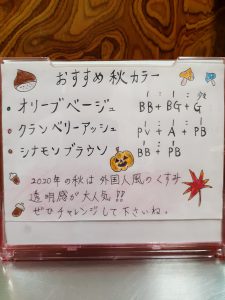 おすすめ 秋カラー
1 : 1 : 少々
・オリーブベージュ BB+BG+G
1 : 1 : 1
・クランベリーアッシュ PV+A+PB
1 : 1
・シナモンブラウン BB+PB
2020年の秋は外国人風のくすみ
透明感が大人気!!
ぜひチャレンジして下さいね。